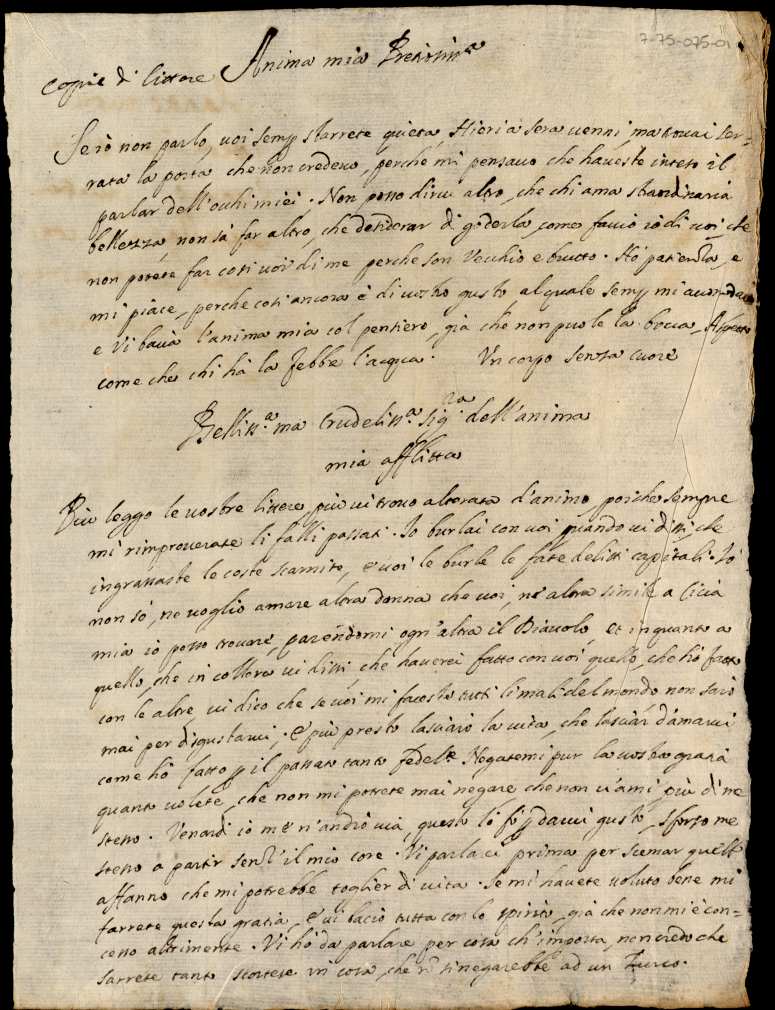 7-75-075-01
Anima mia Pretiosiss.a
copie di lettere
Se io non parlo, voi semp starrete quieta, Hieri a sera venni, ma trovai ser-
rata la porta che non credevo, perche mi pensavo che haveste inteso il
parlar dell'occhi miei. Non posso dirvi altro, che chi ama straordinaria
bellezza, non sà far altro, che desiderar di goderla, come faccio io di voi, che
non potete far cosi voi di me perche son Vecchio e brutto. Hò patienza, e
mi piace, perche cosi ancora è di vostro gusto, al quale semp mi
e Vi bacia l'anima mia col pensiero, già che non puole la bocca. Aspetto
come che chi hà la febbe l'acqua. Un corpo senza cuore
Belliss.a ma Crudeliss.a sig.ra dell'anima
mia afflitta
Più leggo le vostre littere, più vi trovo alterata d'animo, poiche sempre
mi rimproverate li falli passati. Io burlai con voi quando vi dissi, che
ingrassaste le coste scarnite, e voi le burle le fate delitti capitali. Io
non sò, ne voglio amare altra donna che voi, ne altra simile a Cicia
mia io posso trovare, parendomi ogn'altra il Diavolo, et inquanto a
quello, che in collera vi dissi, che haverei fatto con voi quello, che hò fatto
con le altre, vi dico che se voi mi faceste tutti li mali del mondo non sarò
mai per disgustarvi, e più presto lasciarò la vita, che lasciar d'amarvi
come hò fatto p il passato tanto fedel.te Negatemi pur la vostra gratia
quanto volete, che non mi potrete mai negare che non v'ami più di me
stesso. Venardi io me n'andrò via, questo lo fò p darvi gusto, sforzo me
stesso a partir senz'il mio core. Vi parlarei prima per scemar quell'
affanno che mi potrebbe toglier di vita. Se mi havete voluto bene mi
farrete questa gratia, e vi bacio tutta con lo spirito, già che non mi è con=
cesso altrimente. Vi hò da parlare per cosa ch'importa, non credo che
sarrete tanto scortese in cosa, che n si negarebbe ad un Turco.